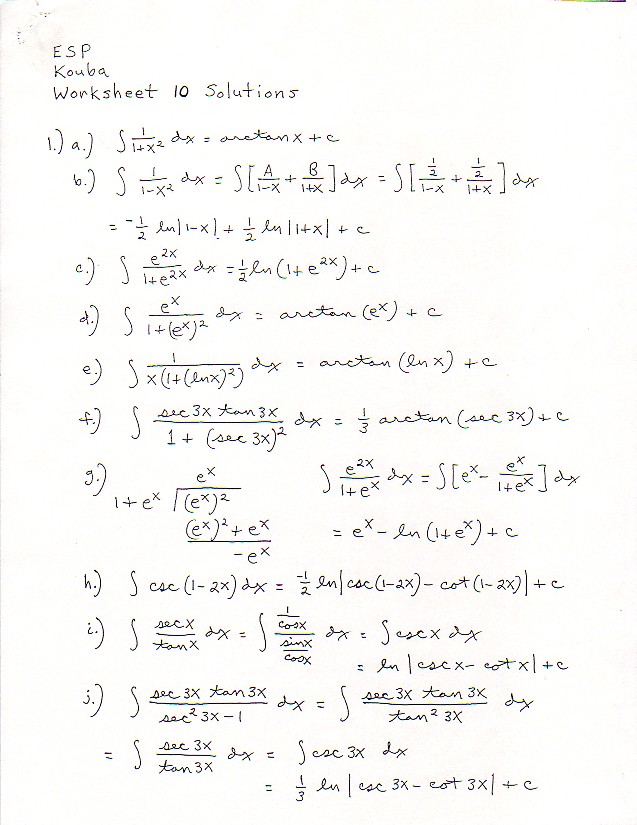 ESP
Kouba
Worksheet 10 Solutions
1.) a.) ∫ 1/(1+x²) dx = arctan x + c
b.) ∫ 1/(1-x²) dx = ∫ [ A/(1-x) + B/(1+x) ] dx = ∫ [ (1/2)/(1-x) + (1/2)/(1+x) ] dx
= -1/2 ln|1-x| + 1/2 ln|1+x| + c
c.) ∫ e^(2x)/(1+e^(2x)) dx = 1/2 ln (1+e^(2x)) + c
d.) ∫ e^x/(1+(e^x)²) dx = arctan (e^x) + c
e.) ∫ 1/(x(1+(ln x)²)) dx = arctan (ln x) + c
f.) ∫ (sec 3x tan 3x)/(1 + (sec 3x)²) dx = 1/3 arctan (sec 3x) + c
g.) e^x
1+e^x √ (e^x)² ∫ e^(2x)/(1+e^x) dx = ∫ [ e^x - e^x/(1+e^x) ] dx
(e^x)² + e^x = e^x - ln (1+e^x) + c
-e^x
h.) ∫ csc (1-2x) dx = -1/2 ln|csc(1-2x) - cot(1-2x)| + c
i.) ∫ (sec x)/(tan x) dx = ∫ (1/cos x)/(sin x/cos x) dx = ∫ csc x dx
= ln |csc x - cot x| + c
j.) ∫ (sec 3x tan 3x)/(sec² 3x - 1) dx = ∫ (sec 3x tan 3x)/(tan² 3x) dx
= ∫ (sec 3x)/(tan 3x) dx = ∫ csc 3x dx
= 1/3 ln | csc 3x - cot 3x| + c